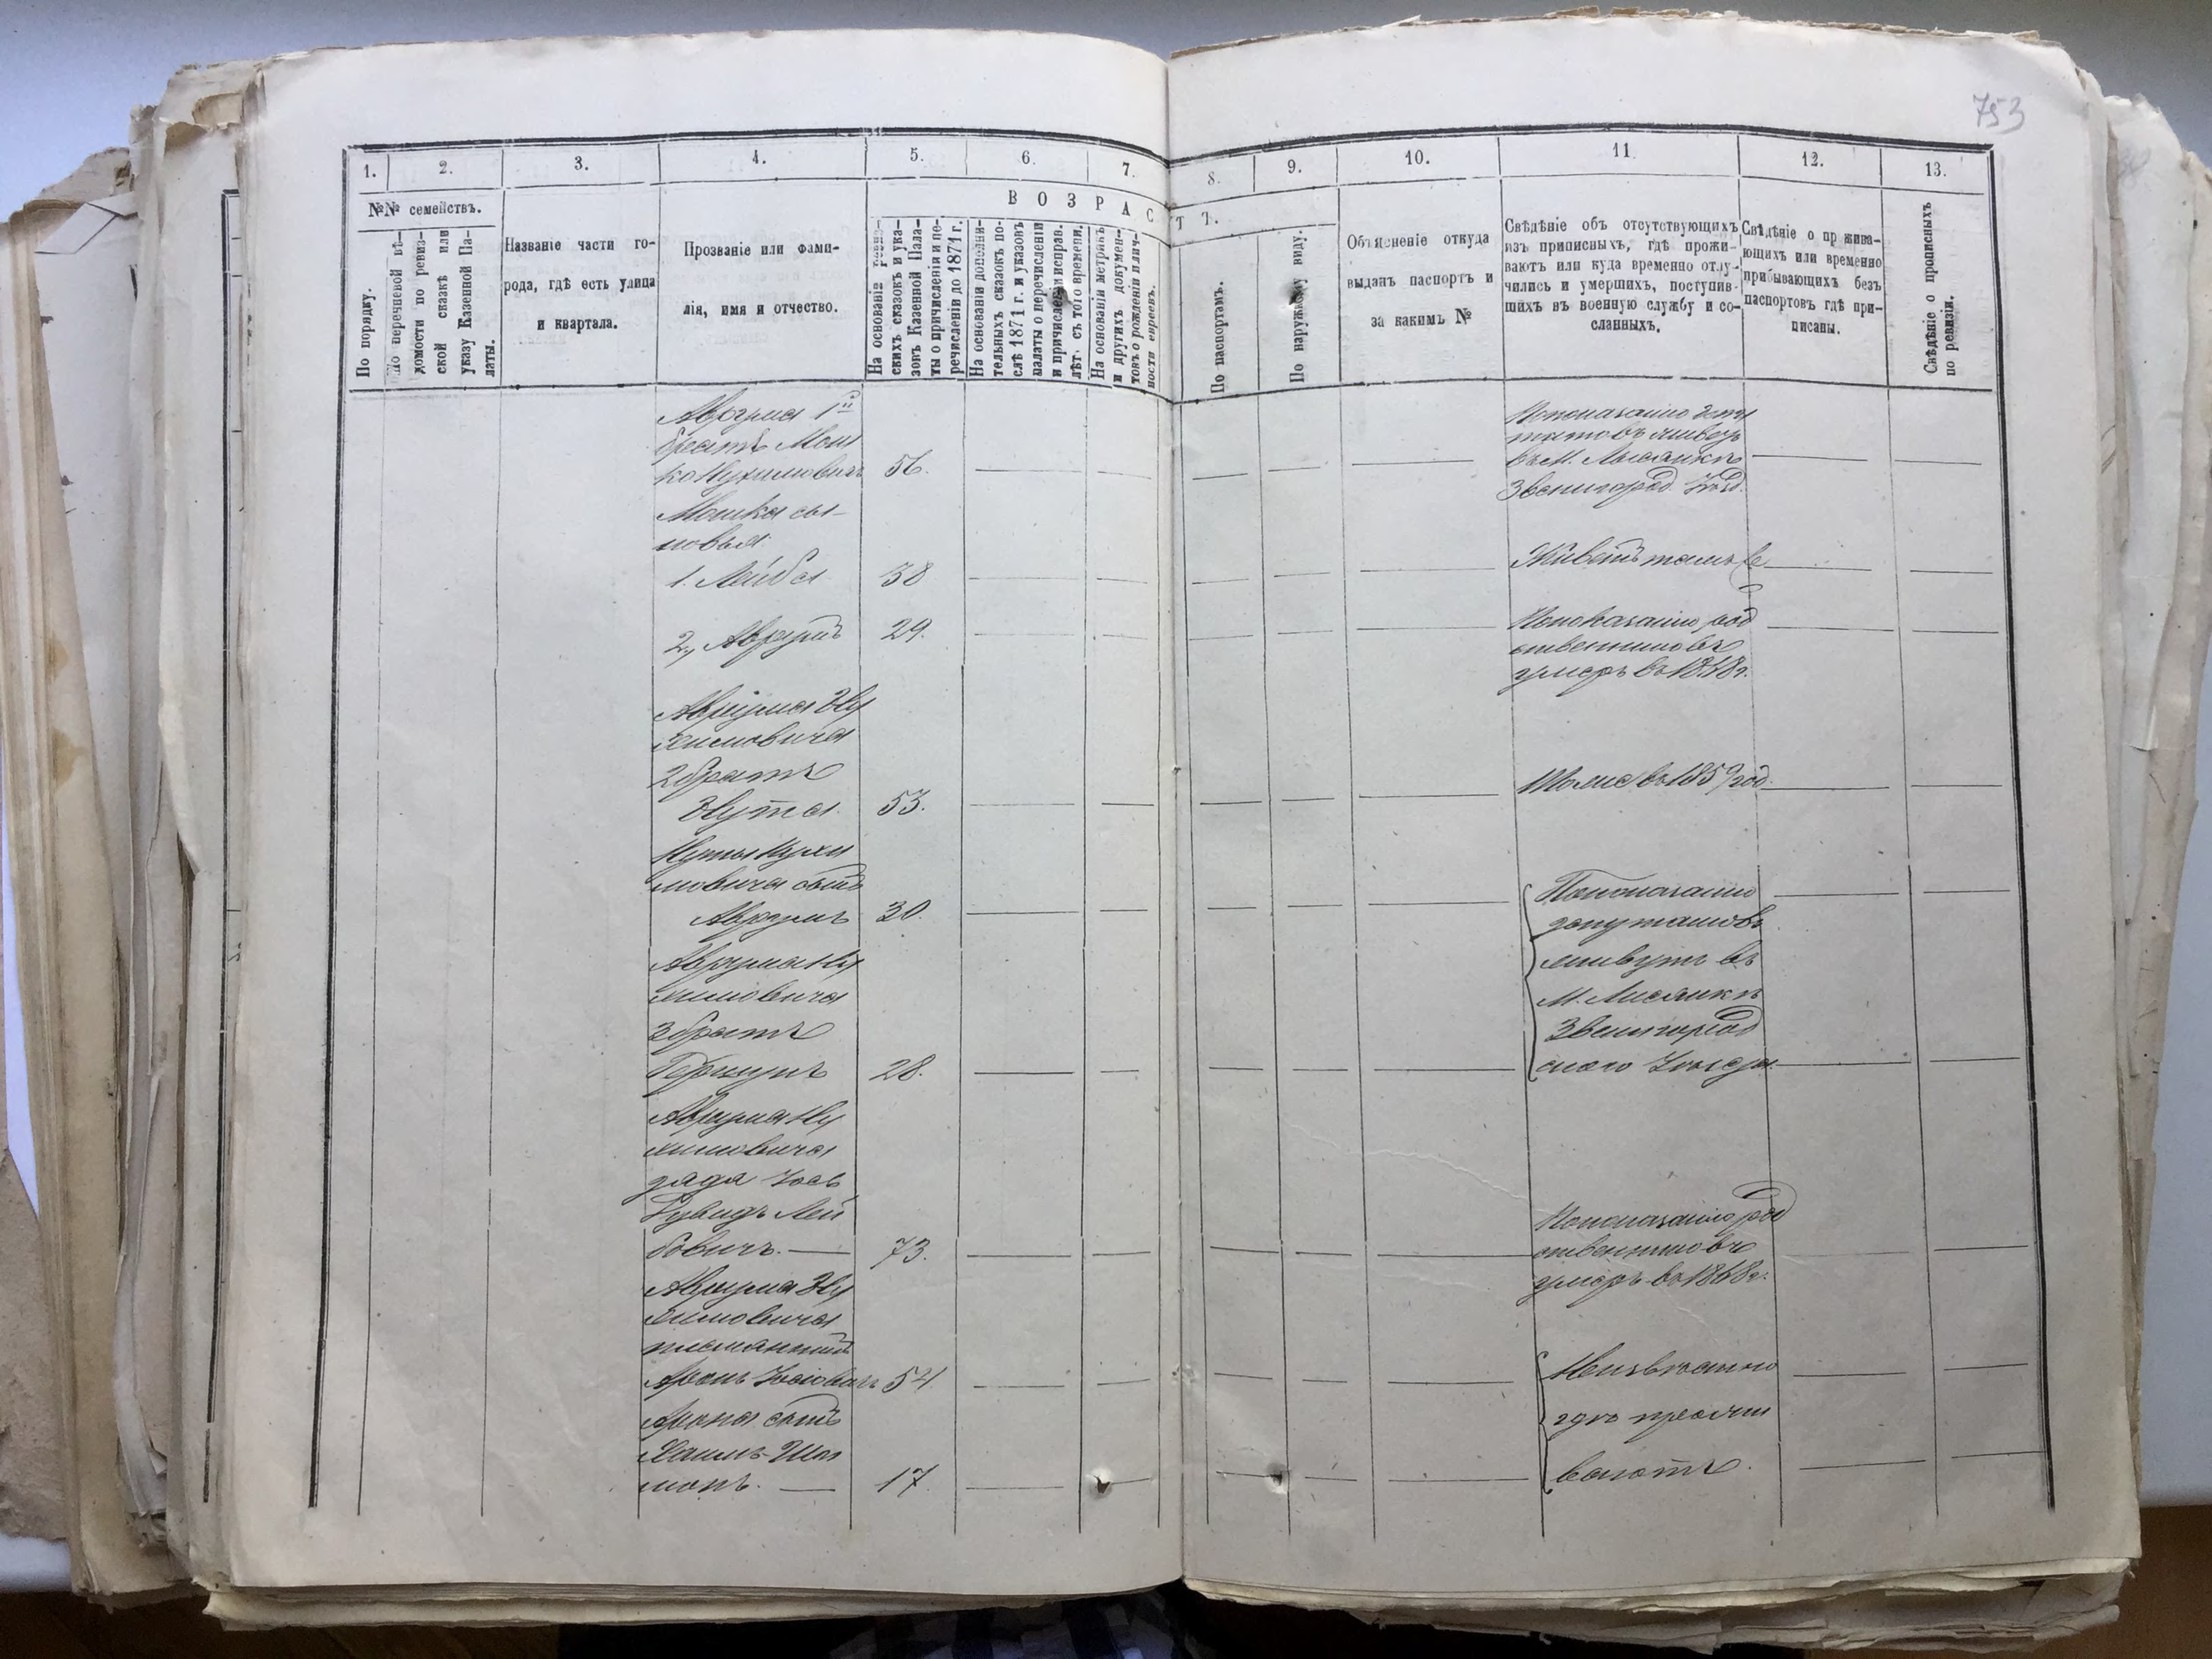 753
1.
2.
3.
4.
5.
6.
7.
8.
9.
10.
11
12.
13.
№№ семействъ.
ВОЗРАСТЪ.
По порядку.
По перечневой вѣ-
домости по ревиз-
ской сказкѣ или
указу Казенной Па-
латы.
Названіе части го-
рода, гдѣ есть улица
и квартала.
Прозваніе или фами-
лія, имя и отчество.
На основаніи ревиз-
скихъ сказокъ и ука-
зовъ Казенной Пала-
ты о причисленіи и пе-
речисленіи до 1871 г.
На основаніи дополни-
тельныхъ сказокъ по-
слѣ 1871 г. и указовъ
палаты о перечисленіи
и причисленіи исправ.
лѣт. съ того времени.
На основаніи метрикъ
и другихъ докумен-
товъ о рожденіи и лич-
ности евреевъ.
По паспортамъ.
По наружному виду.
Объясненіе откуда
выданъ паспортъ и
за какимъ №
Свѣдѣніе объ отсутствующихъ
изъ приписныхъ, гдѣ прожи-
ваютъ или куда временно отлу-
чились и умершихъ, поступив-
шихъ въ военную службу и со-
сланныхъ.
Свѣдѣніе о прожива-
ющихъ или временно
прибывающихъ безъ
паспортовъ гдѣ при-
писаны.
Свѣдѣніе о прописныхъ
по ревизіи.
Аврума 1й
братъ Мош
ко Нухимовичъ 56.
По показанію
въ М. Лысянкѣ
Звенигород. Уѣзд.
Мошка сы-
новья:
1. Лейба 38
Живетъ тамъ же
2, Аврумъ 29.
По показанію род
ственниковъ
умеръ въ г.
Аврума Ну
химовича
2 братъ
Нута 53.
Тоже въ 1859 год.
Нуты Нухи
мовича сынъ
Аврумъ 30.
Аврума Ну
химовича
3 братъ
Гершунъ 28.
По показанію
депутатовъ
живутъ въ
М. Лисянкѣ
Звенигород
скаго Уѣзда
Аврума Ну
химовича
дядя Іось
Дувидъ Лей
бовичъ. — 73.
По показанію род
ственниковъ
умеръ въ 1868г.
Аврума Ну
химовича
племянникъ
Аронъ Іосіовичъ 54
Арона сынъ
Хаимъ-Шол
монъ. — 17.
Неизвѣстно
гдѣ прожи
ваютъ.